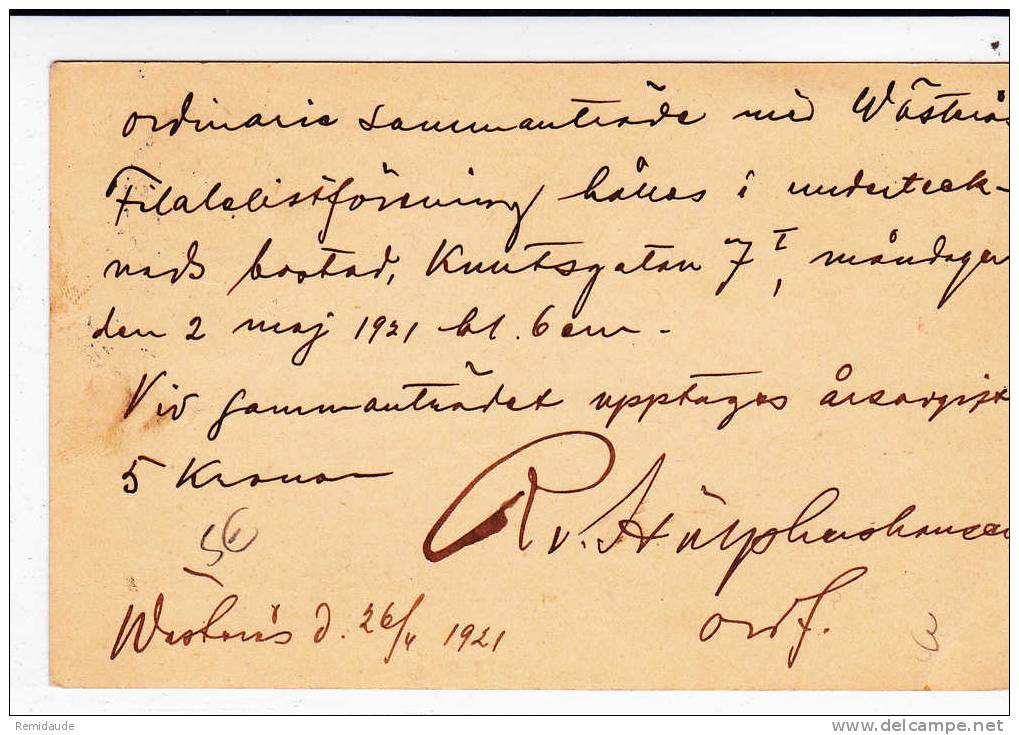 ordinarie sammanträde med Wästerås
Filatelistförening hålles i underteck-
nads bostad, Knutsgatan 7 I, måndagen
den 2 maj 1921 kl. 6 em.
Vid sammanträdet upptages årsavgift
5 Kronor
R v. Hülphershausen
ordf.
Wästerås d. 26/4 1921
Remidaude
www.delcampe.net